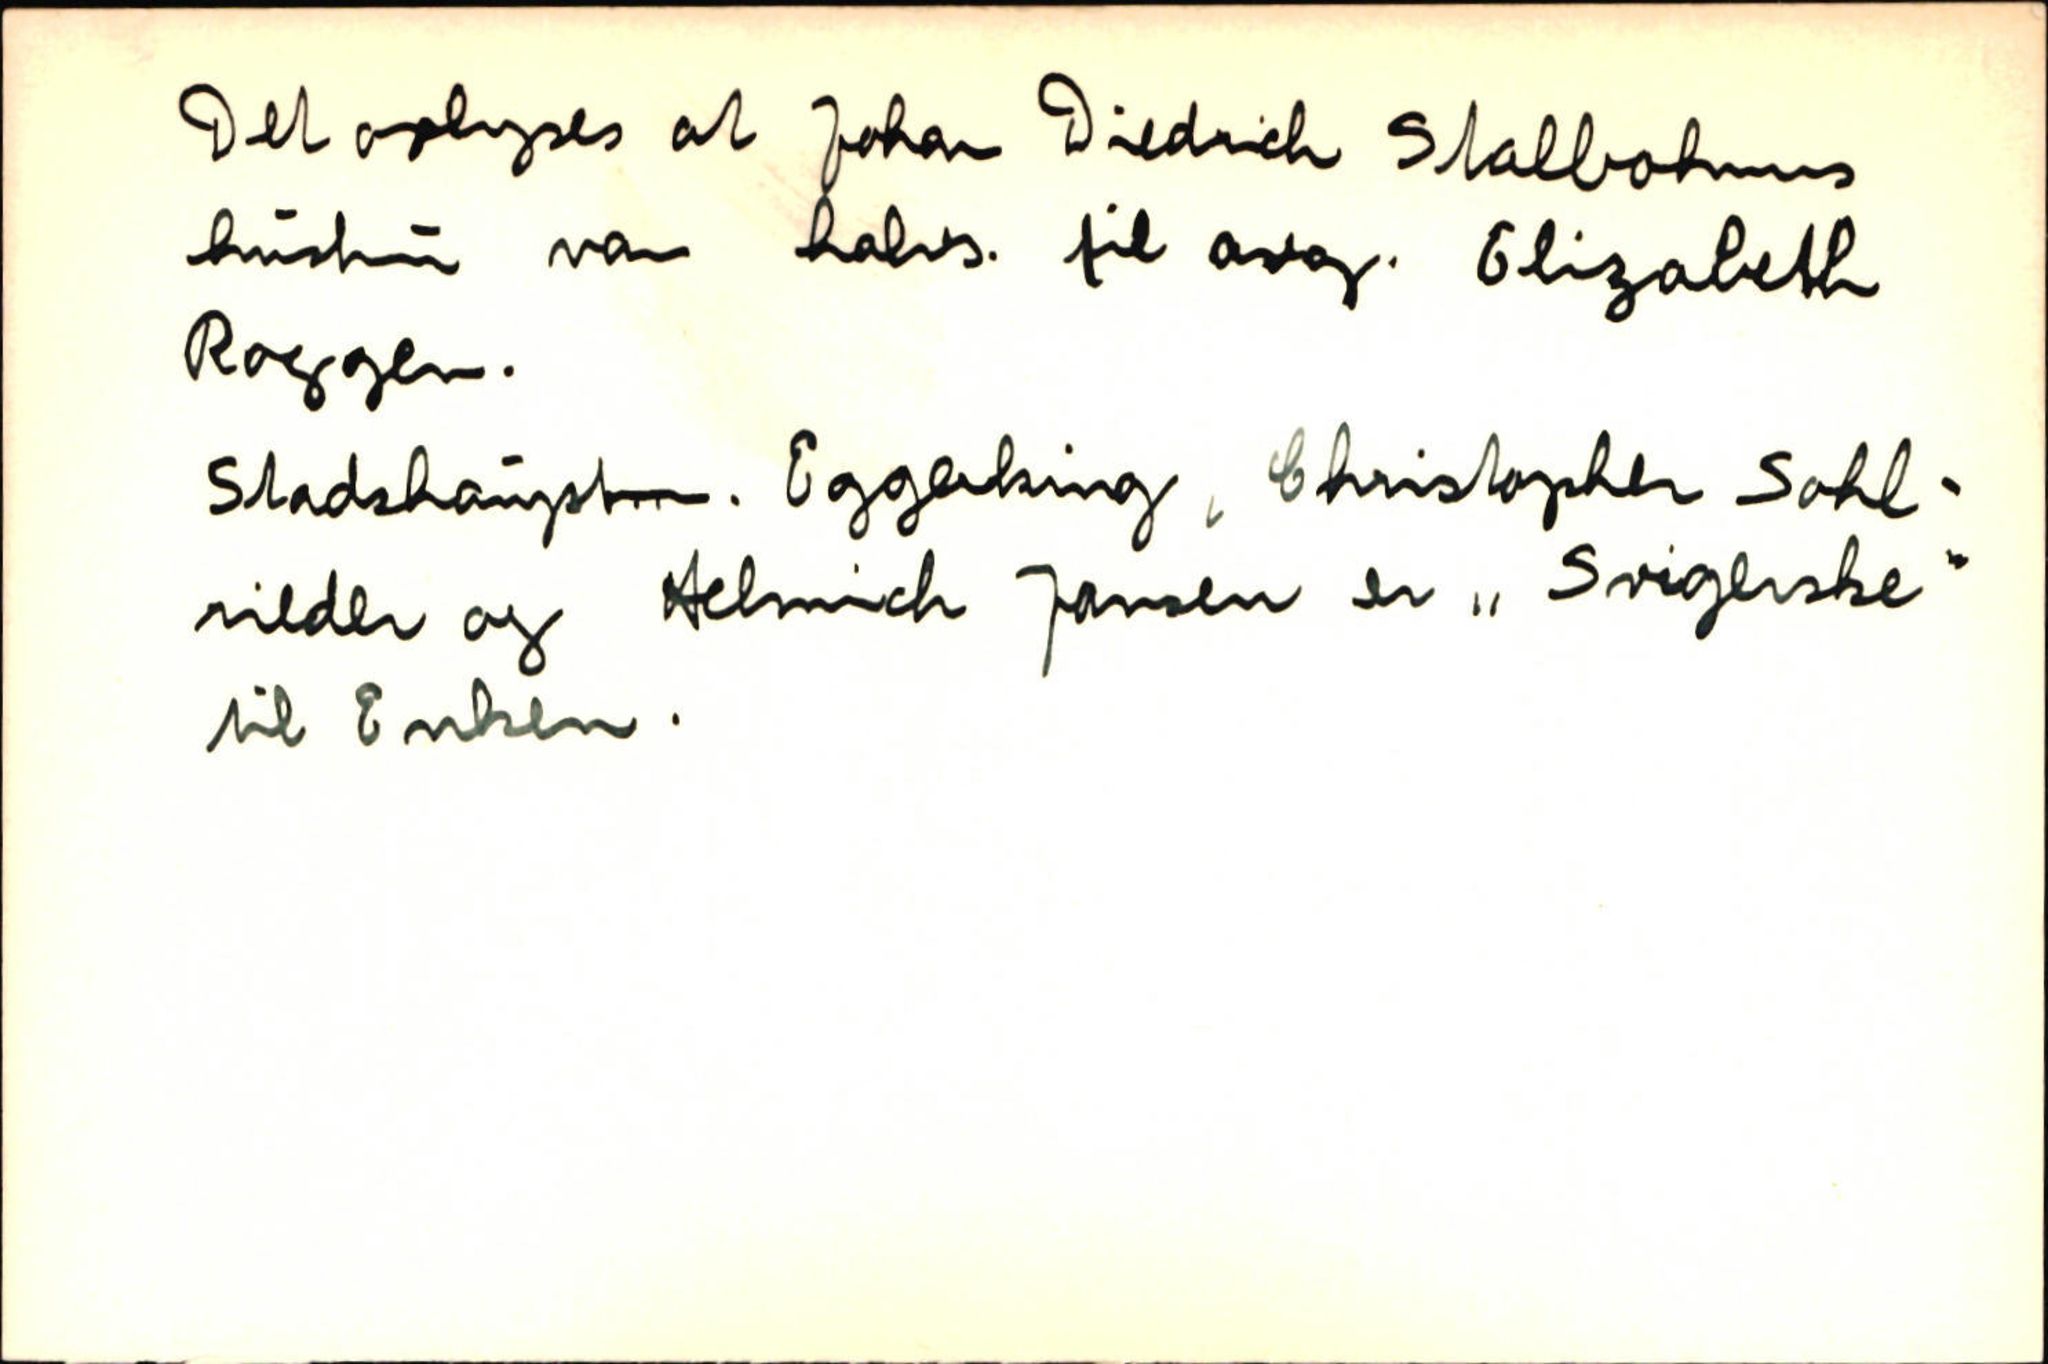 Det oplyses at Johan Diedrich Stalbohms
hustru var halvs. til avg. Elizabeth
Roggen.
Stadshauptm. Eggerking, Christopher Sohl-
rieder og Helmich Jansen er „Svigerske"
til Enken.